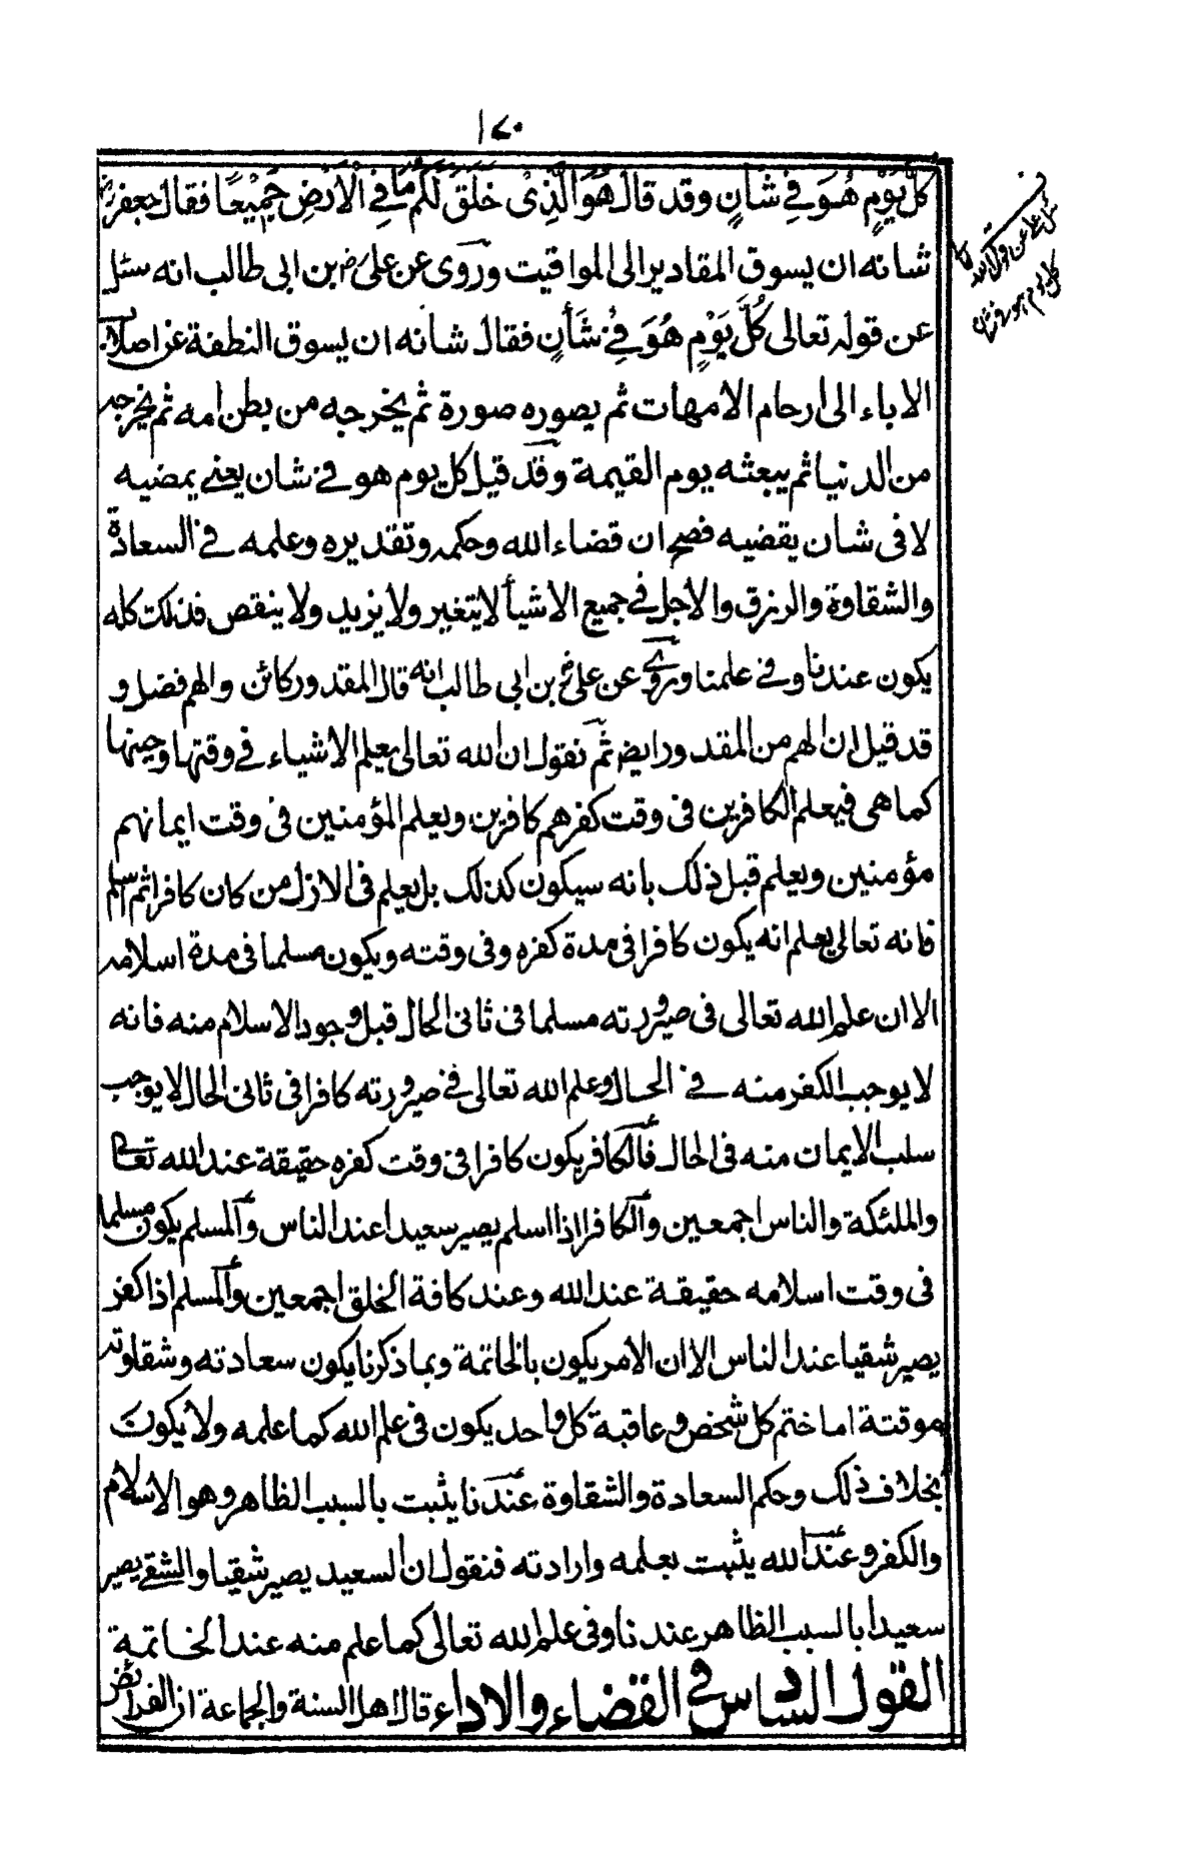 ١٧٠
كُلَّ يَوْمٍ هُوَ فِيْ شَانٍ وقد قال هُوَ الَّذِىْ خَلَقَ لَكُمْ مَّا فِي الْاَرْضِ جَمِيْعًا فقال جعفر
شانه ان يسوق المقادير الى المواقيت وروى عن علىؓ بن ابى طالب انه سئل
عن قوله تعالى كُلَّ يَوْمٍ هُوَ فِىْ شَأنٍ فقال شانه ان يسوق النطفة عن اصلاب
الاباء الى ارحام الامهات ثم يصوره صورة ثم يخرجه من بطن امه ثم يخرجه
من الدنيا ثم يبعثه يوم القيمة وقد قيل كل يوم هو فى شان يعنى يمضيه
لا فى شان يقضيه فصح ان قضاء الله وحكمه وتقديره وعلمه فى السعادة
والشقاوة والرزق والاجل فى جميع الاشياء لا يتغير ولا يزيد ولا ينقص فذلك كله
يكون عندنا وفى علمنا وروى عن علىؓ بن ابى طالب انه قال المقدور كائن والهم فضل و
قد قيل ان الهم من المقدور ايض ثم نقول ان الله تعالى يعلم الاشياء فى وقتها وحينها
كما هى فيعلم الكافرين فى وقت كفرهم كافرين ويعلم المؤمنين فى وقت ايمانهم
مؤمنين ويعلم قبل ذلك بانه سيكون كذلك بل يعلم فى الازل من كان كافرا ثم اسلم
فانه تعالى يعلم انه يكون كافرا فى مدة كفره وفى وقته ويكون مسلما فى مدة اسلامه
الا ان علم الله تعالى فى صيرورته مسلما فى ثانى الحال قبل وجود الاسلام منه فانه
لا يوجب الكفر منه فى الحال وعلم الله تعالى فى صيرورته كافرا فى ثانى الحال لا يوجب
سلب الايمان منه فى الحال فالكافر يكون كافرا فى وقت كفره حقيقة عند الله تعالى
والملئكة والناس اجمعين والكافر اذا اسلم يصير سعيدا عند الناس والمسلم يكون مسلما
فى وقت اسلامه حقيقة عند الله وعند كافة الخلق اجمعين والمسلم اذا كفر
يصير شقيا عند الناس الا ان الامر يكون بالخاتمة وبما ذكرنا يكون سعادته وشقاوته
موقتة اما ختم كل شخص وعاقبة كل واحد يكون فى علم الله كما علمه ولا يكون
بخلاف ذلك وحكم السعادة والشقاوة عندنا يثبت بالسبب الظاهر وهو الاسلام
والكفر وعند الله يثبت بعلمه وارادته فنقول ان السعيد يصير شقيا والشقى يصير
سعيدا بالسبب الظاهر عندنا وفى علم الله تعالى كما علم منه عند الخاتمة
القول السادس فى القضاء والاداء قال اهل السنة والجماعة ان الفرائض
كل يوم هو فى شان